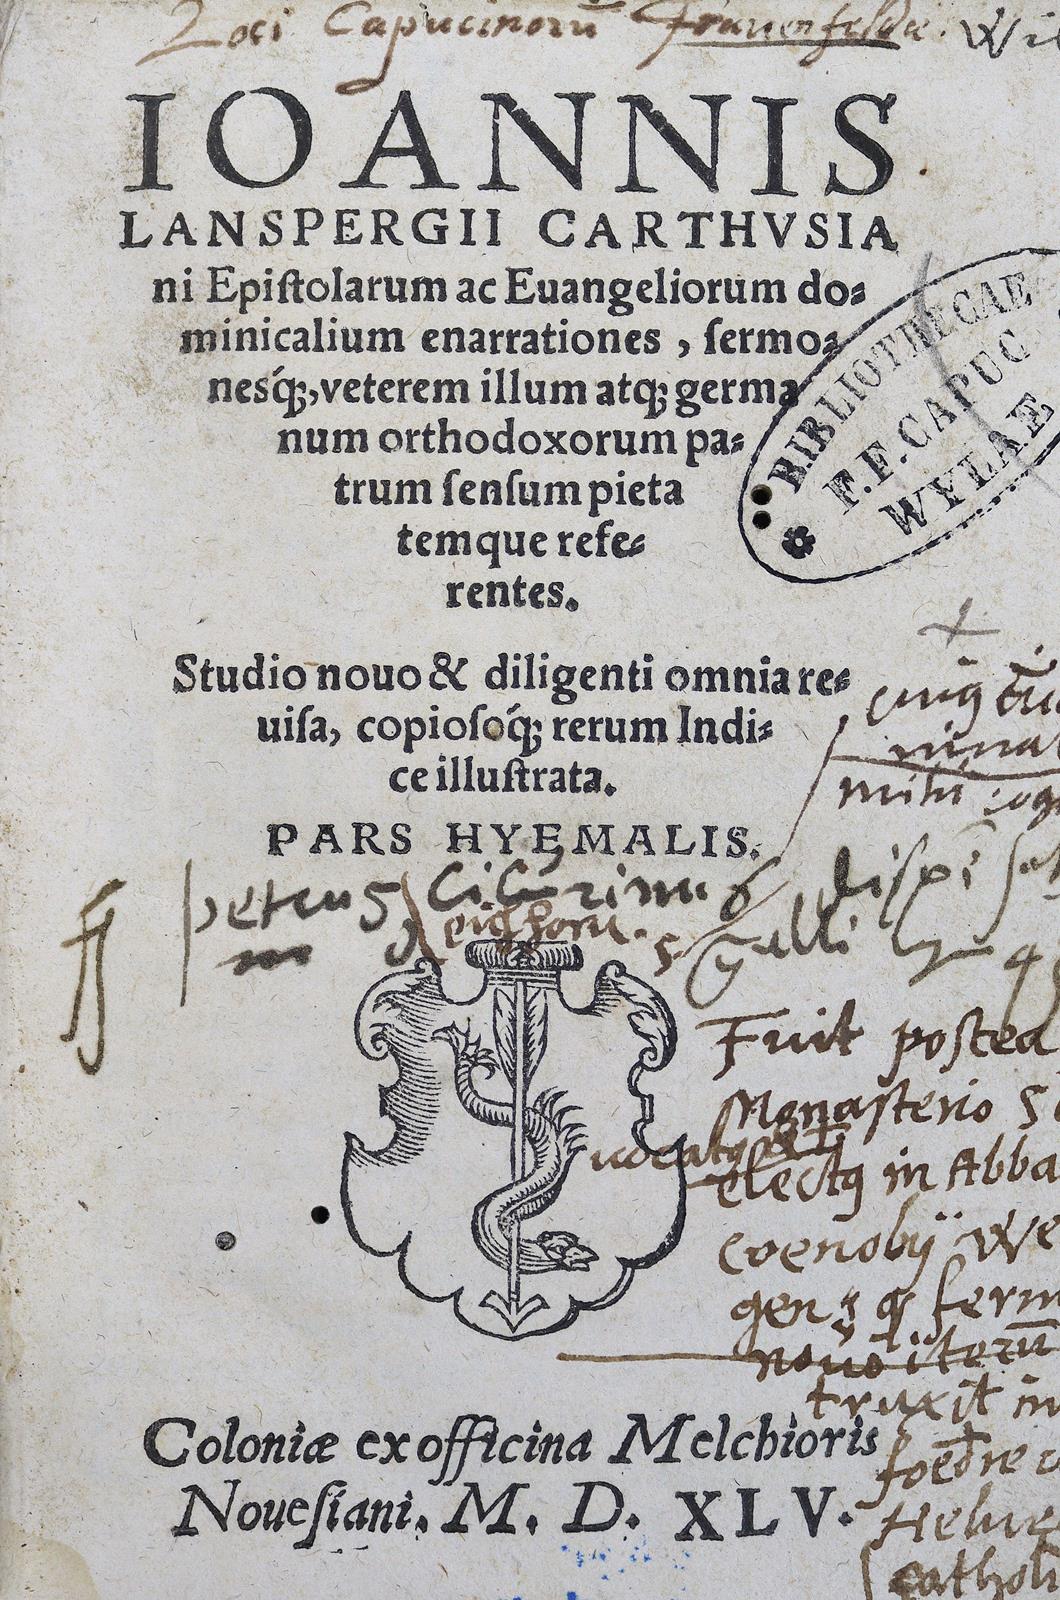 Loci Capucinorū Frauenfeldii. Wil
IOANNIS
LANSPERGII CARTHVSIA
ni Epiſtolarum ac Euangeliorum do⸗
minicalium enarrationes, ſermo⸗
nesq́;, veterem illum atq; germa
num orthodoxorum pa⸗
trum ſenſum pieta
temque refe⸗
rentes.
BIBLIOTHECAE
F.F. CAPUC
WYLAE
Studio nouo & diligenti omnia re⸗
uiſa, copioſoq́; rerum Indi⸗
ce illuſtrata.
mihi
PARS HYEMALIS.
petrus
eichorn.
Fuit postea
Monasterio
electq in Abba
coenobij We
gen
truxit in
foedre
Helue
catholi
Coloniæ ex officina Melchioris
Noueſiani. M. D. XLV.